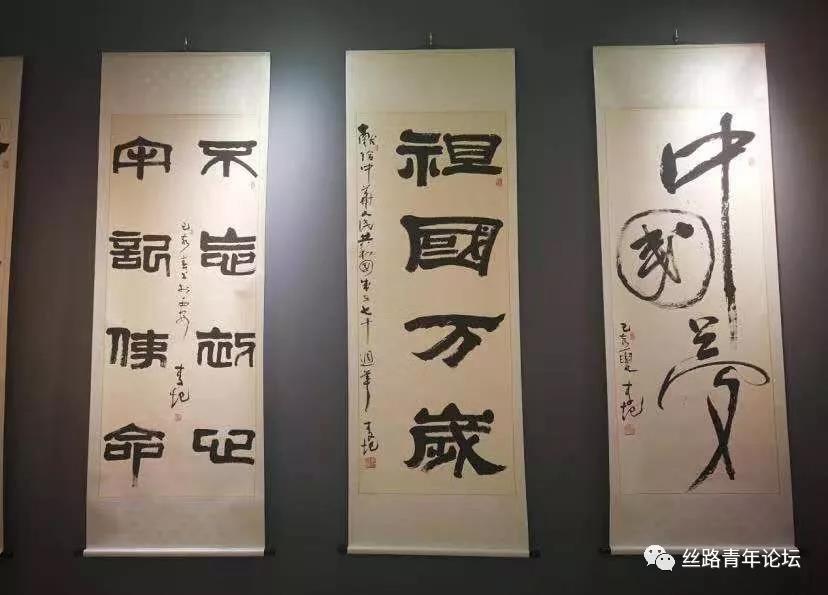 不忘初心
牢記使命
祖國万歲
獻给中華人民共和国成立七十週年
中國夢
己亥
丝路青年论坛